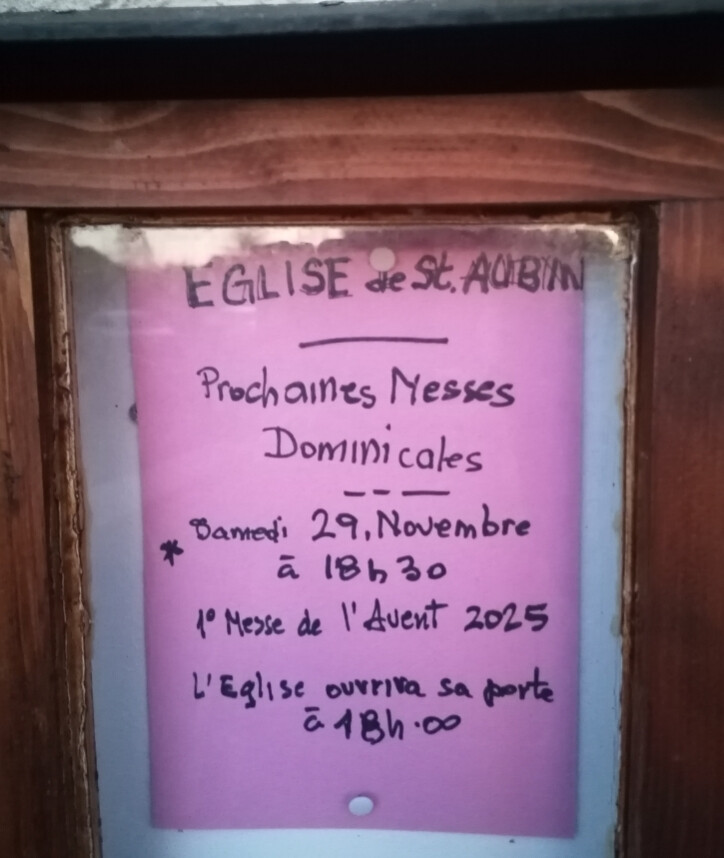 EGLISE de St. AUBIN
Prochaines Messes
Dominicales
* Samedi 29, Novembre
à 18h30
1° Messe de l'Avent 2025
L'Eglise ouvrira sa porte
à 18h.00